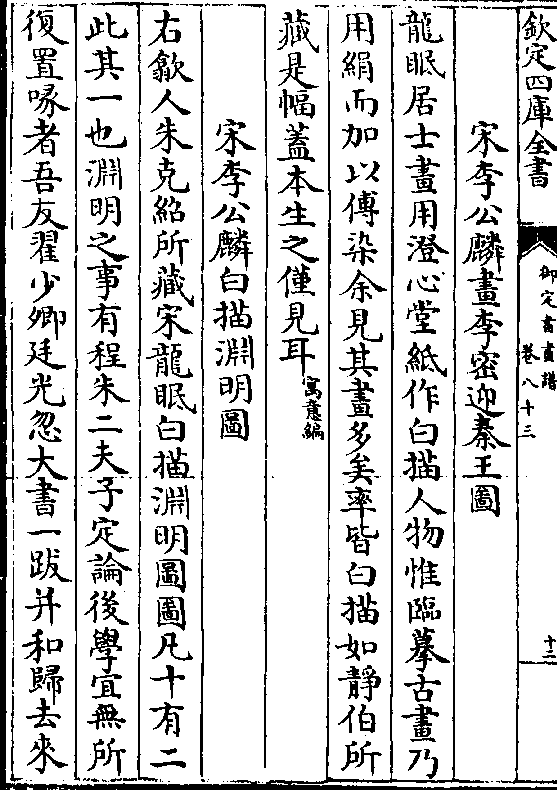 欽定四庫全書
御定書畫譜
卷八十三
十二
宋李公麟畫李密迎秦王圖
龍眠居士畫用澄心堂紙作白描人物惟臨摹古畫乃
用絹而加以傅染余見其畫多矣率皆白描如靜伯所
藏是幅蓋本生之僅見耳寓意編
宋李公麟白描淵明圖
右歙人朱克紹所藏宋龍眠白描淵明圖圖凡十有二
此其一也淵明之事有程朱二夫子定論後學宜無所
復置喙者吾友翟少卿廷光忽大書一跋并和歸去來